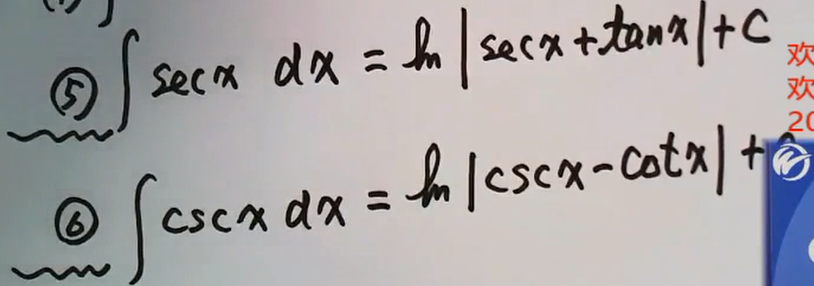 ⑤ ∫ secx dx = ln |secx + tanx| + C
⑥ ∫ cscx dx = ln |cscx - cotx| +
欢
欢
20